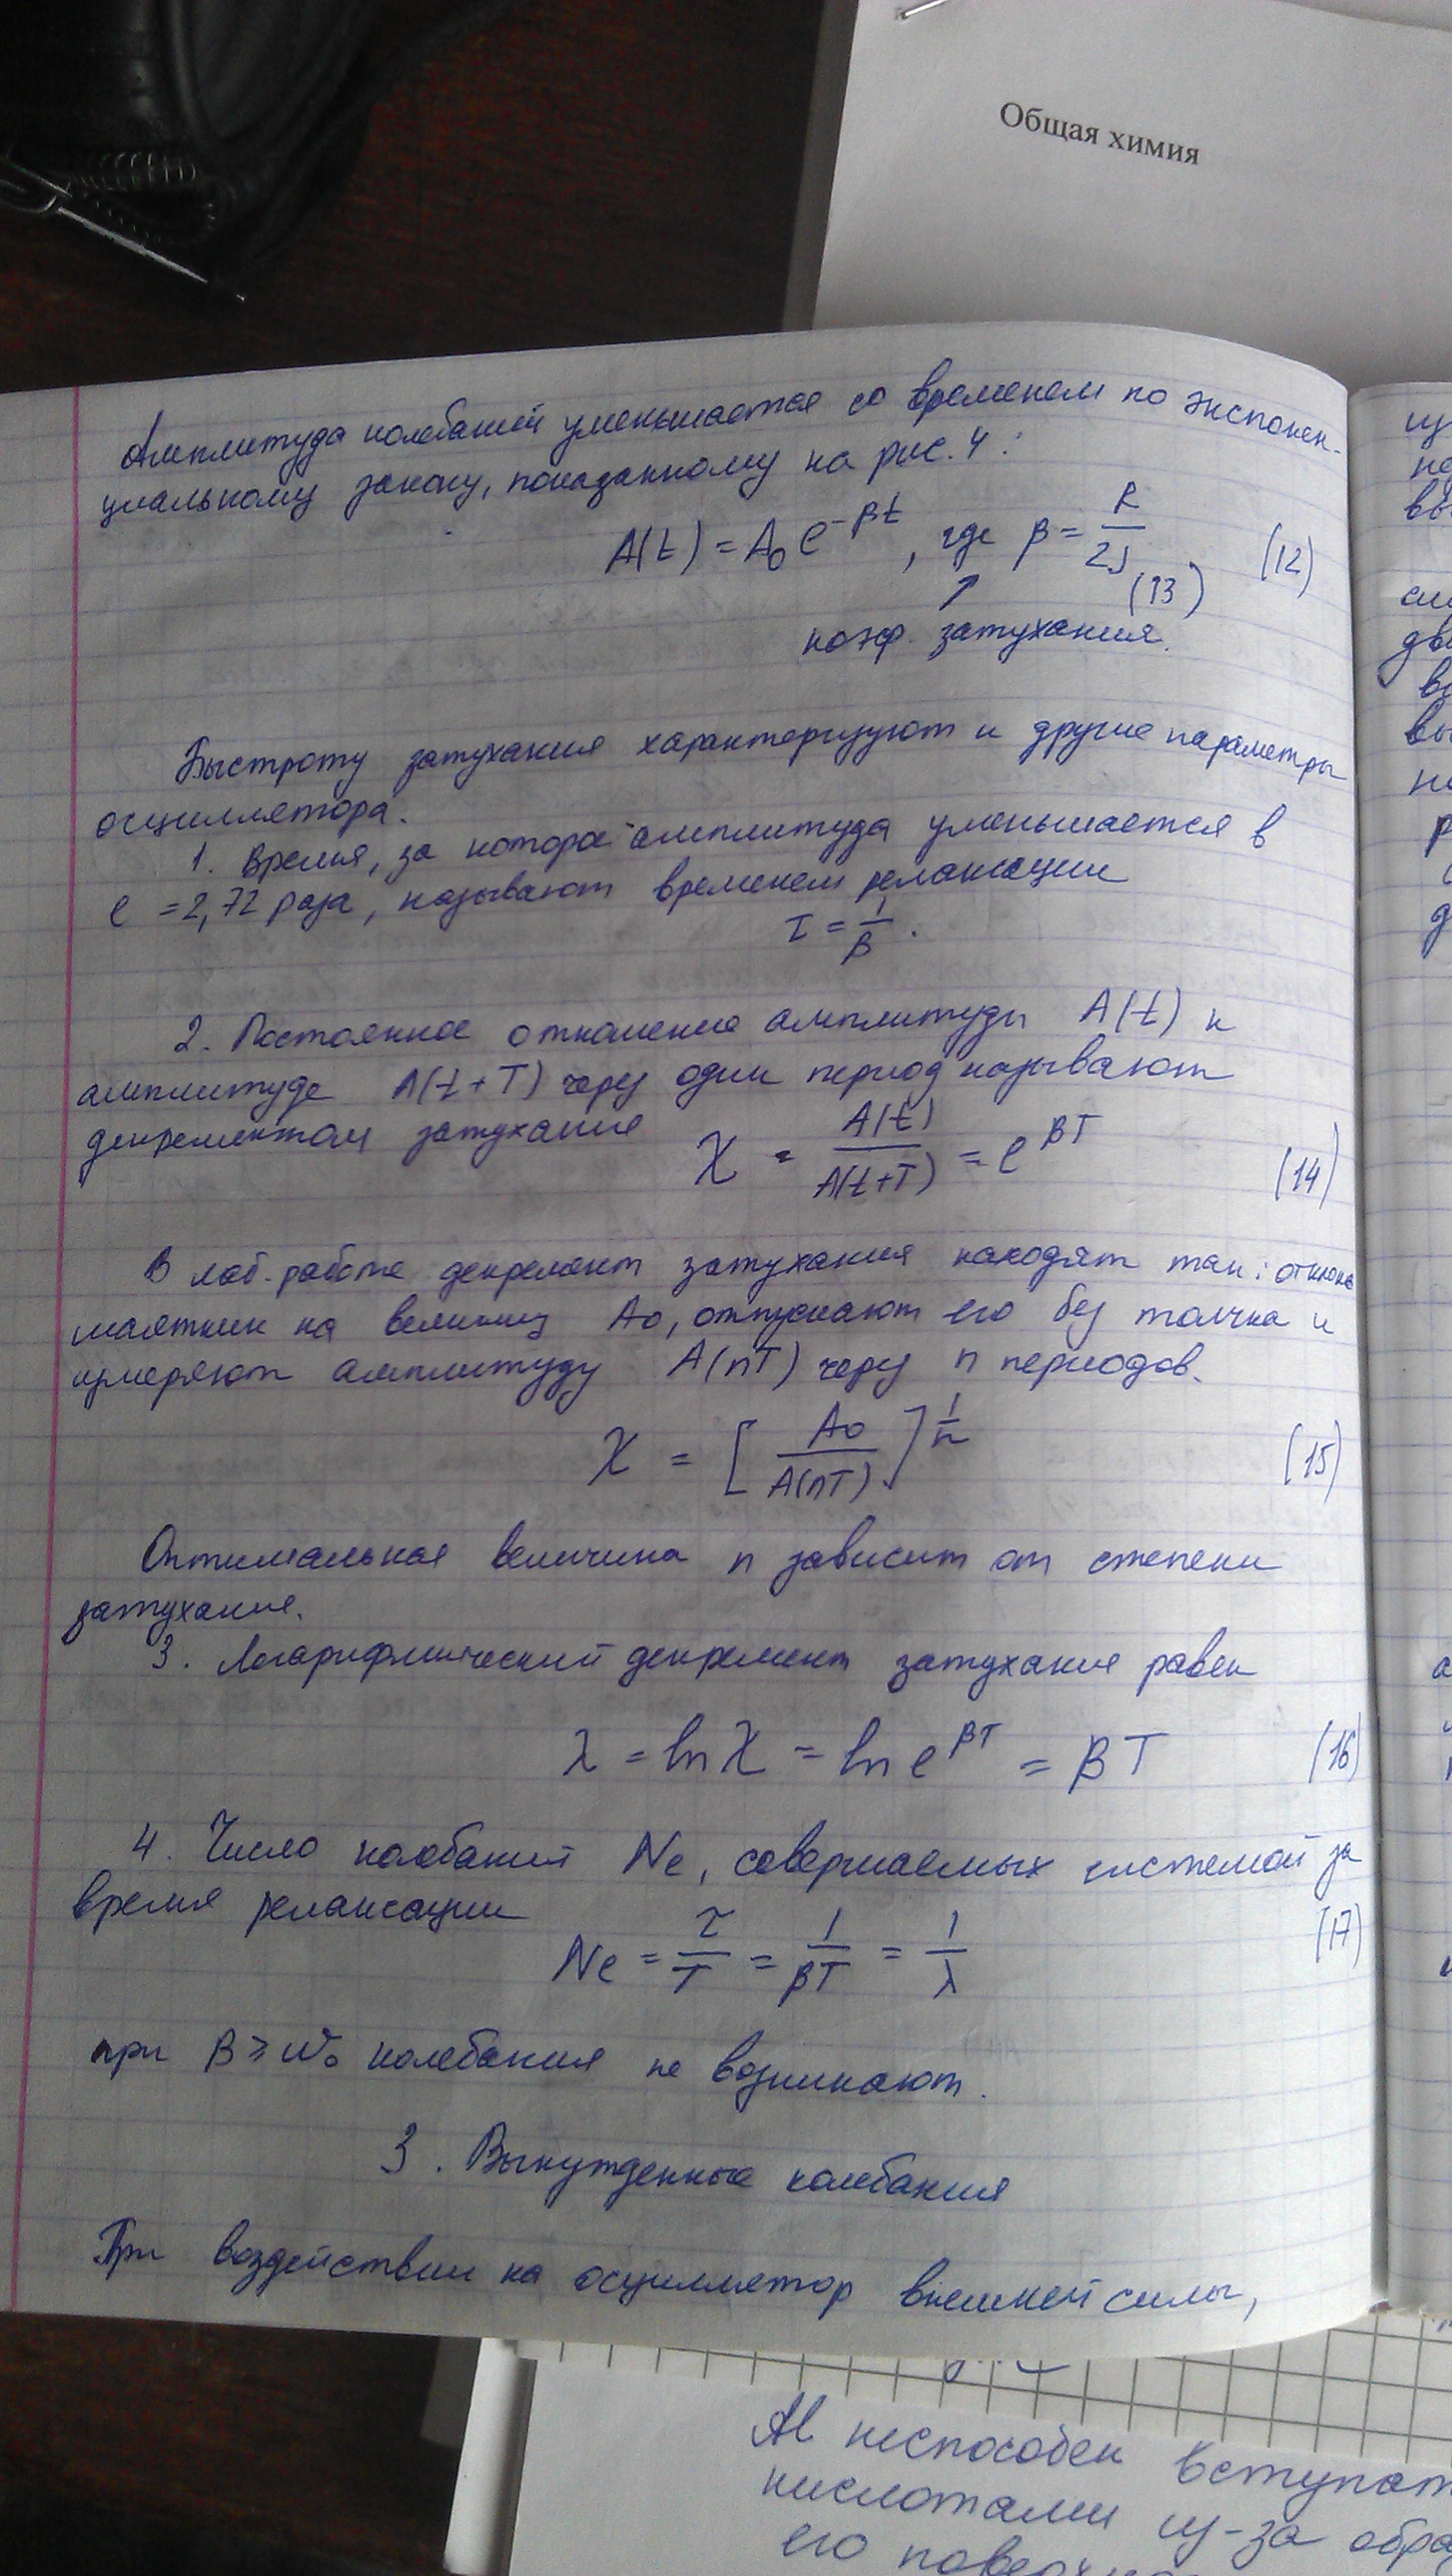 Общая химия
Амплитуда колебаний уменьшается со временем по экспонен-
циальному закону, показанному на рис. 4:
A(t) = A₀ e^{-βt}, где β = R/2J (12)
(13)
коэф. затухания.
Быстроту затухания характеризуют и другие параметры
осциллятора.
1. Время, за которое амплитуда уменьшается в
e = 2,72 раза, называют временем релаксации
τ = 1/β.
2. Постоянное отношение амплитуды A(t) к
амплитуде A(t+T) через один период называют
декрементом затухания
χ = A(t)/A(t+T) = e^{βT} (14)
В лаб. работе декремент затухания находят так: отклоня
маятник на величину A₀, отпускают его без толчка и
измеряют амплитуду A(nT) через n периодов.
χ = [A₀/A(nT)]^{1/n} (15)
Оптимальная величина n зависит от степени
затухания.
3. Логарифмический декремент затухания равен
λ = ln χ = ln e^{βT} = βT (16)
4. Число колебаний Ne, совершаемых системой за
время релаксации
Ne = τ/T = 1/βT = 1/λ (17)
при β ≥ ω₀ колебания не возникают.
3. Вынужденные колебания
При воздействии на осциллятор внешней силы,
Al неспособен вступат
кислотами из-за обра
его